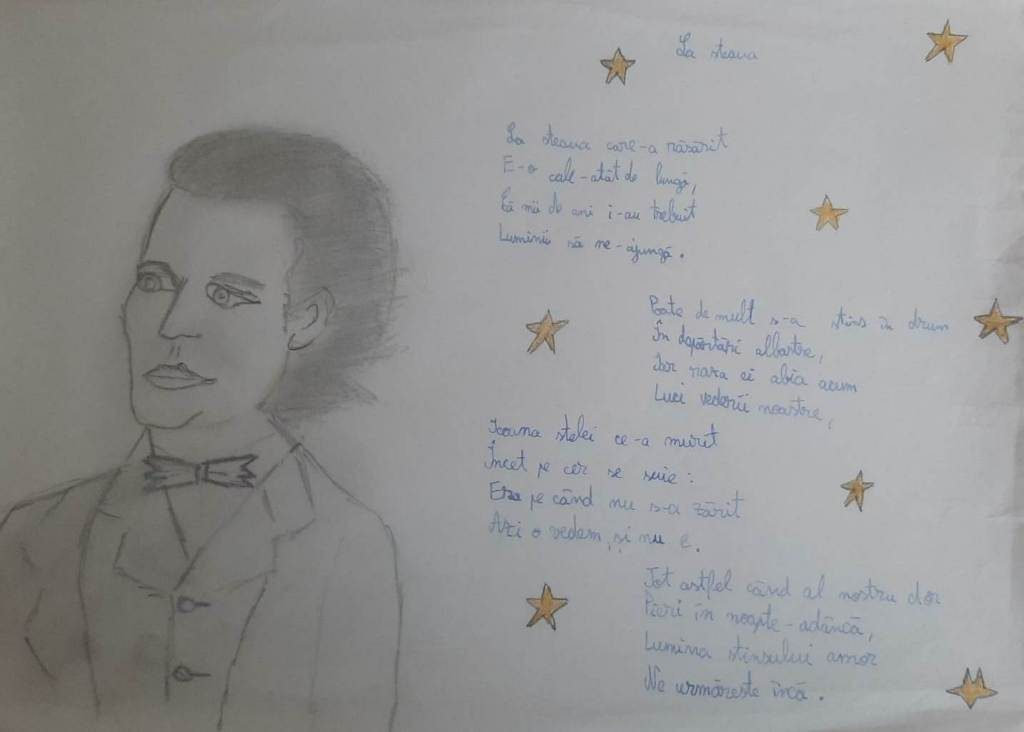 La steaua
La steaua care-a răsărit
E-o cale-atât de lungă,
Că mii de ani i-au trebuit
Luminii să ne-ajungă.
Poate de mult s-a stins în drum
În depărtări albastre,
Iar raza ei abia acum
Luci vederii noastre,
Icoana stelei ce-a murit
Încet pe cer se suie:
Era pe când nu s-a zărit
Azi o vedem, și nu e.
Tot astfel când al nostru dor
Pieri în noapte-adâncă,
Lumina stinsului amor
Ne urmărește încă.